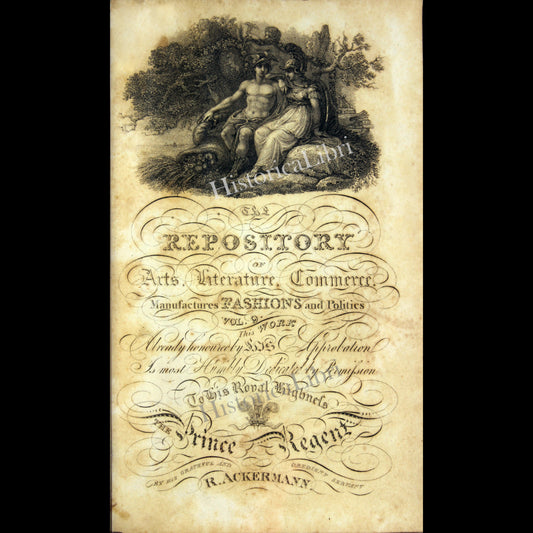 HistoricaLibri
The
REPOSITORY
OF
Arts, Literature, Commerce,
Manufactures FASHIONS and Politics
VOL. 9.
This WORK
Already honoured by HIS Approbation
Is most Humbly Dedicated by Permission
To His Royal Highness
HistoricaLibri
THE Prince Regent
BY HIS GRATEFUL AND OBEDIENT SERVANT
R. ACKERMANN.